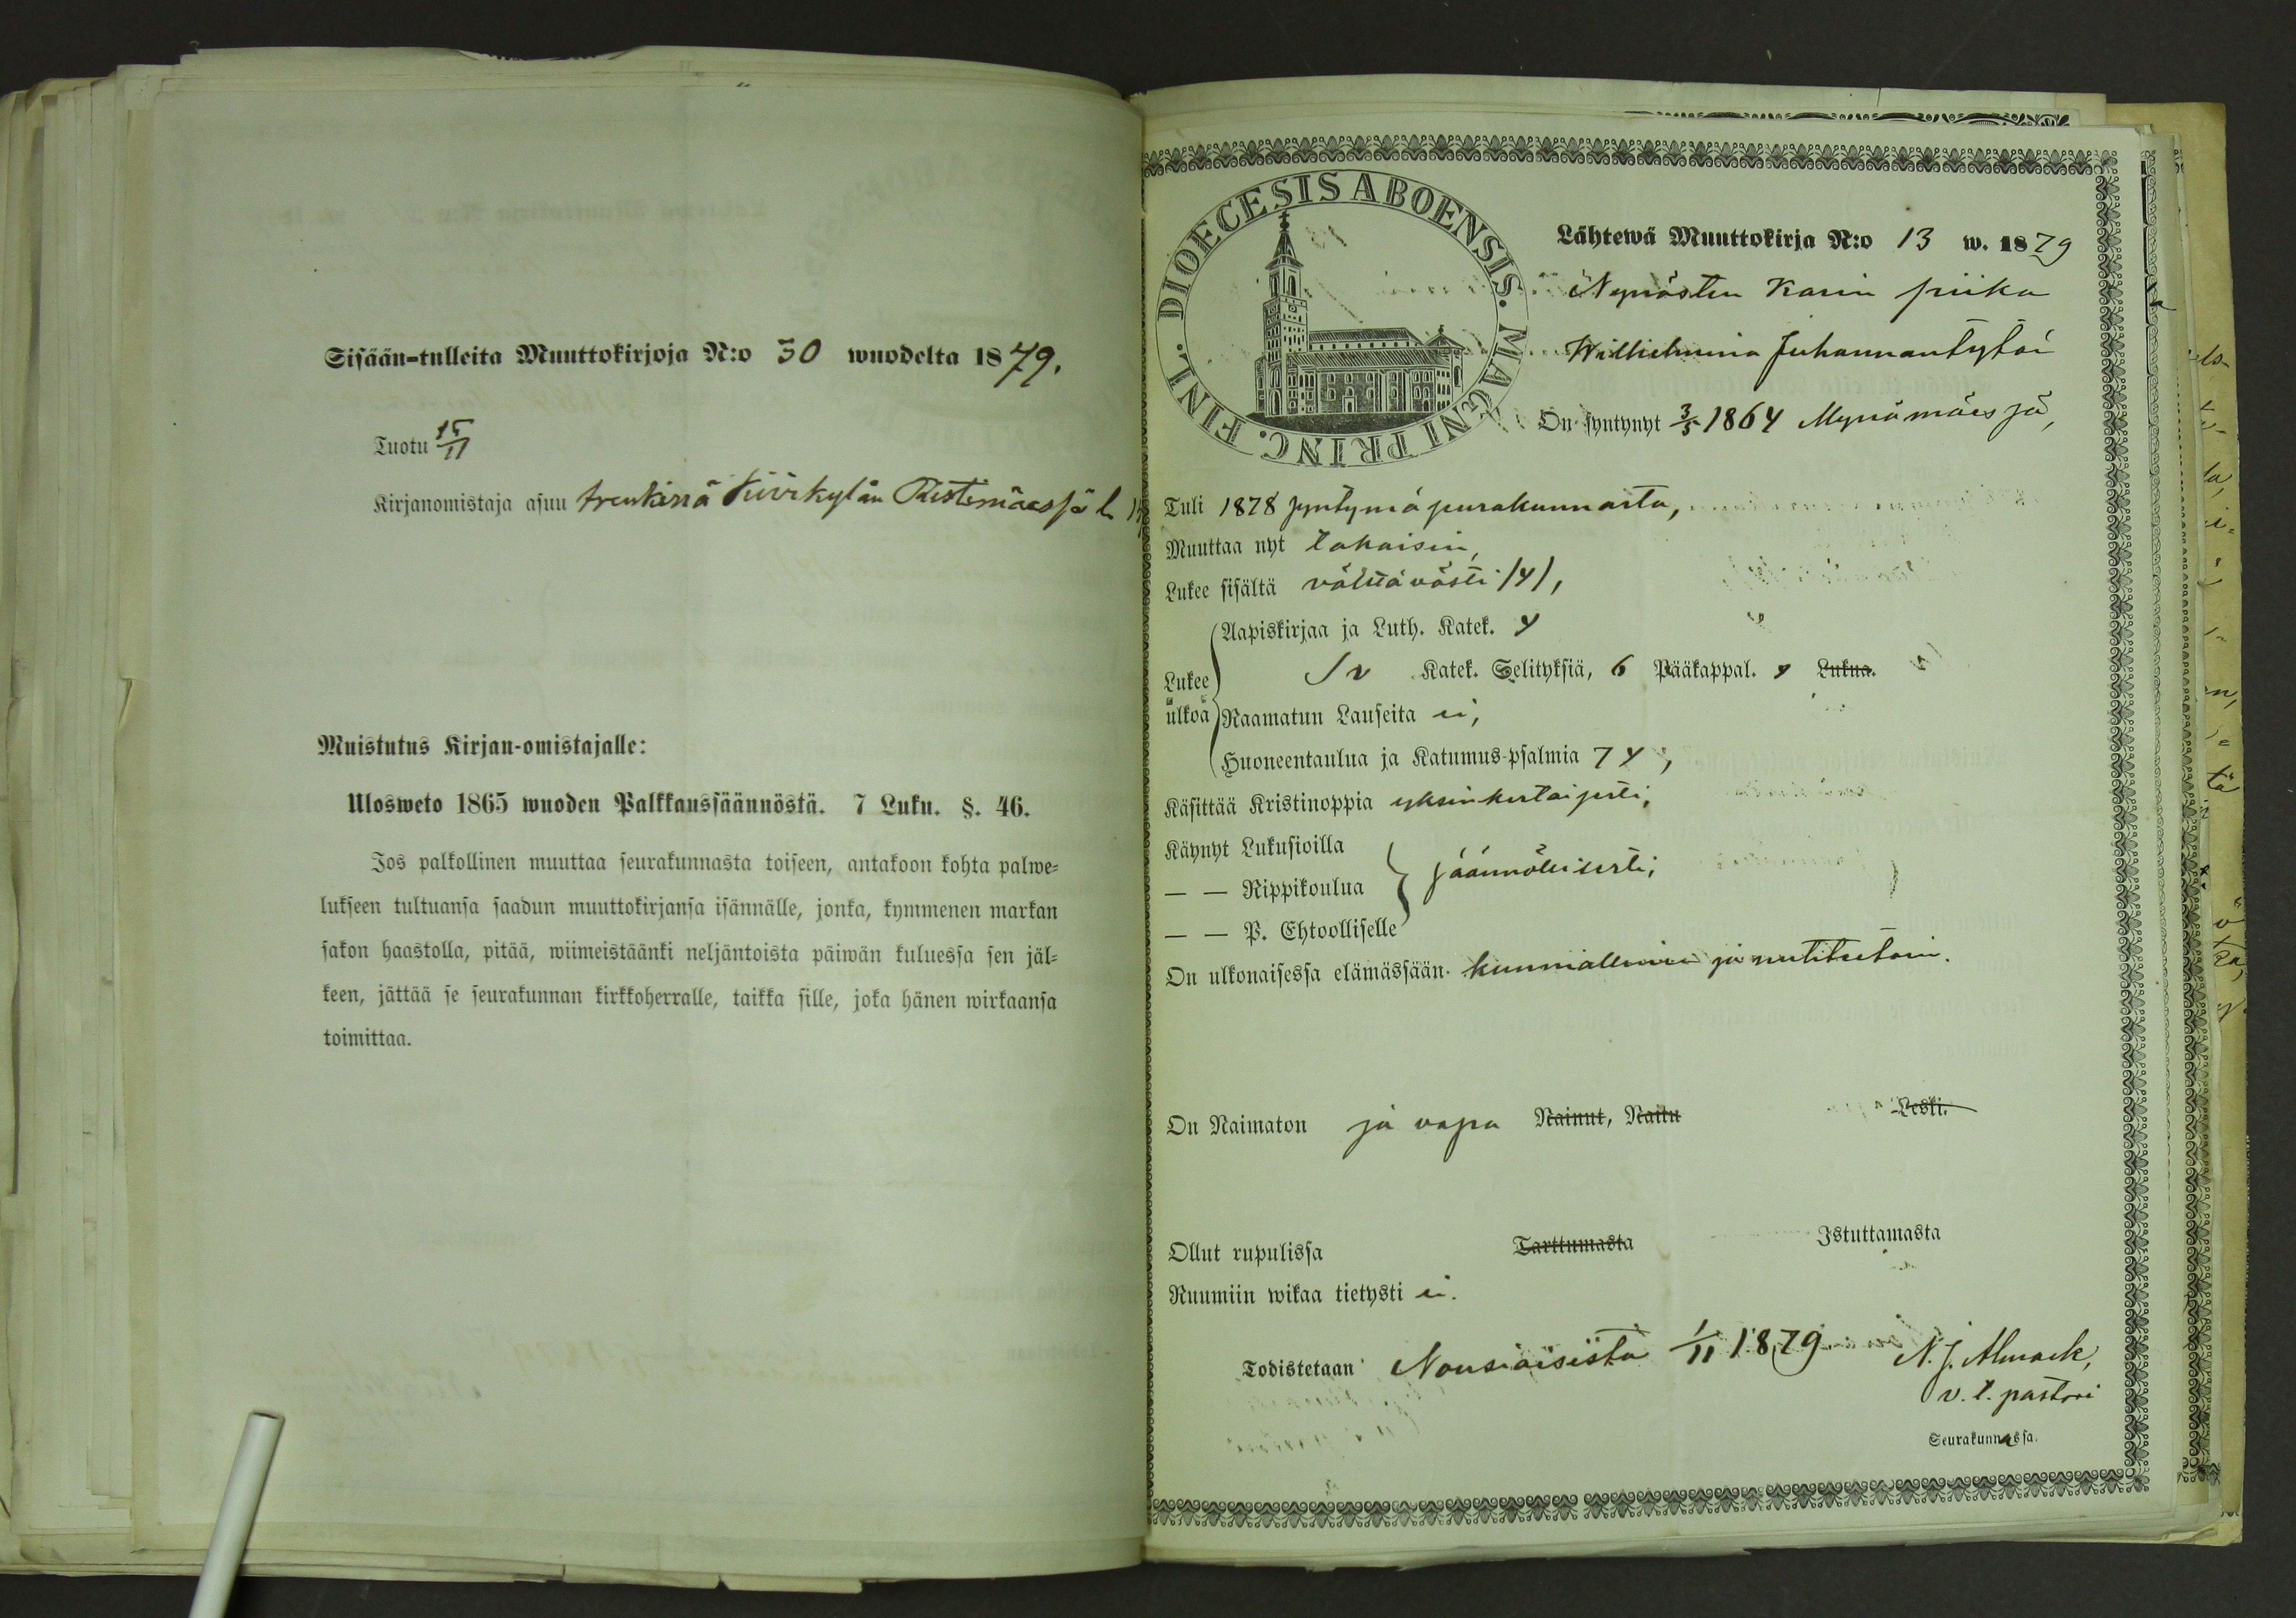 Sisään-tulleita Muuttokirjoja N:o 30 wuodelta 1879.
Tuotu 15/11
Kirjanomistaja asuu trenkinä Kivikylän Ristimäessä
Muistutus Kirjan-omistajalle:
Ulosweto 1865 wuoden Palkkaussäännöstä. 7 Luku. §. 46.
Jos palkollinen muuttaa seurakunnasta toiseen, antakoon kohta palwe-
lukseen tultuansa saadun muuttokirjansa isännälle, jonka, kymmenen markan
sakon haastolla, pitää, wiimeistäänki neljäntoista päiwän kuluessa sen jäl-
keen, jättää se seurakunnan kirkkoherralle, taikka sille, joka hänen wirkaansa
toimittaa.
DIOECESIS ABOENSIS. MAGNI PRINC. FINL.
Lähtewä Muuttokirja N:o 13 w. 1879
Karin piika
Willhelmina Juhannantytär
On syntynyt 3/5 1864 Mynämäessä,
Tuli 1878 syntymäseurakunnasta,
Muuttaa nyt takaisin,
Lukee sisältä välttävästi /y/,
Lukee ulkoa
Aapiskirjaa ja Luth. Katek. y
Sv Katek. Selityksiä, 6 Pääkappal. y Lukua.
Raamatun Lauseita ei,
Huoneentaulua ja Katumus-psalmia 7 y,
Käsittää Kristinoppia yksinkertaisesti,
Käynyt Lukusioilla
— — Rippikoulua säännöllisesti;
— — P. Ehtoolliselle
On ulkonaisessa elämässään kunniallinen ja
On Naimaton ja vapa Nainut, Naitu Leski.
Ollut rupulissa Tarttumasta Istuttamasta
Ruumiin wikaa tietysti ei.
Todistetaan Nousiaisista 1/11 1879 N. J. Almark,
v. t. pastori
Seurakunnassa.